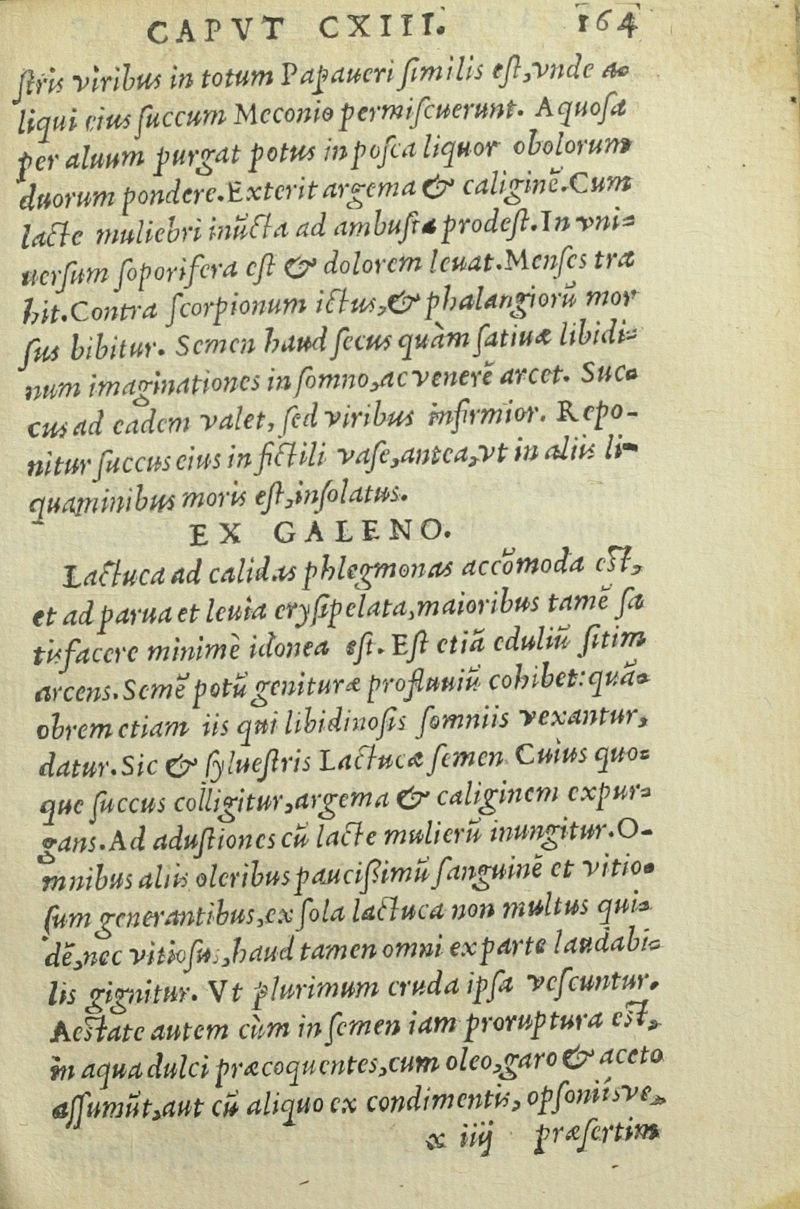 CAPVT CXIII. 164
ſtris viribus in totum Papaueri ſimilis eſt, vnde a-
liqui eius ſuccum Meconio permiſcuerunt. Aquoſa
per aluum purgat potus in poſca liquor obolorum
duorum pondere. Exterit argema & caliginẽ. Cum
lacte muliebri inũcta ad ambuſta prodeſt. In vni-
uerſum ſoporifera eſt & dolorem leuat. Menſes tra
hit. Contra ſcorpionum ictus, & phalangiorũ mor
ſus bibitur. Semen haud ſecus quàm ſatiuæ libidi-
num imaginationes in ſomno, ac venerẽ arcet. Suc-
cus ad eadem valet, ſed viribus infirmior. Repo-
nitur ſuccus eius in fictili vaſe, antea, vt in aliis li-
quaminibus moris eſt, inſolatus.
EX GALENO.
Lactuca ad calidas phlegmonas accõmoda eſt,
et ad parua et leuia eryſipelata, maioribus tamẽ ſa
tisfacere minimè idonea eſt. Eſt etiã eduliũ ſitim
arcens. Semẽ potũ genituræ profluuiũ cohibet: quã-
obrem etiam iis qui libidinoſis ſomniis vexantur,
datur. Sic & ſylueſtris Lactucæ ſemen Cuius quo-
que ſuccus colligitur, argema & caliginem expur-
gans. Ad aduſtiones cũ lacte mulierũ inungitur. O-
mnibus aliis oleribus pauciſſimũ ſanguinẽ et vitio-
ſum generantibus, ex ſola lactuca non multus qui-
dẽ, nec vitioſus, haud tamen omni ex parte laudabi-
lis gignitur. Vt plurimum cruda ipſa veſcuntur.
Aeſtate autem cùm in ſemen iam proruptura eſt,
in aqua dulci præcoquentes, cum oleo, garo & aceto
aſſumũt, aut cũ aliquo ex condimentis, opſoniisve,
x iiij præſertim